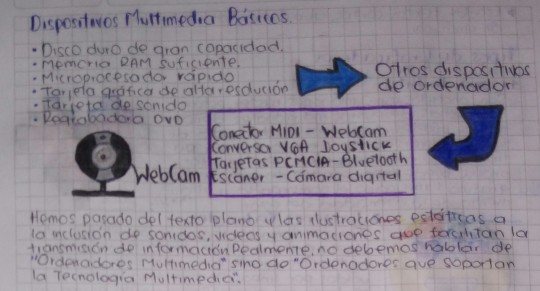 Dispositivos Multimedia Básicos.
• Disco duro de gran capacidad.
• Memoria RAM suficiente.
• Microprocesador rápido
• Tarjeta gráfica de alta resolución
• Tarjeta de sonido
• Regrabadora DVD
Otros dispositivos
de ordenador
Conector MIDI - Webcam
Conversa VGA Joystick
Tarjetas PCMCIA - Bluetooth
Escáner - Cámara digital
WebCam
Hemos pasado del texto plano y las ilustraciones estáticas a
la inclusión de sonidos, videos y animaciones que facilitan la
transmisión de información Realmente, no debemos hablar de
"Ordenadores Multimedia" sino de "Ordenadores que soportan
la Tecnología Multimedia".